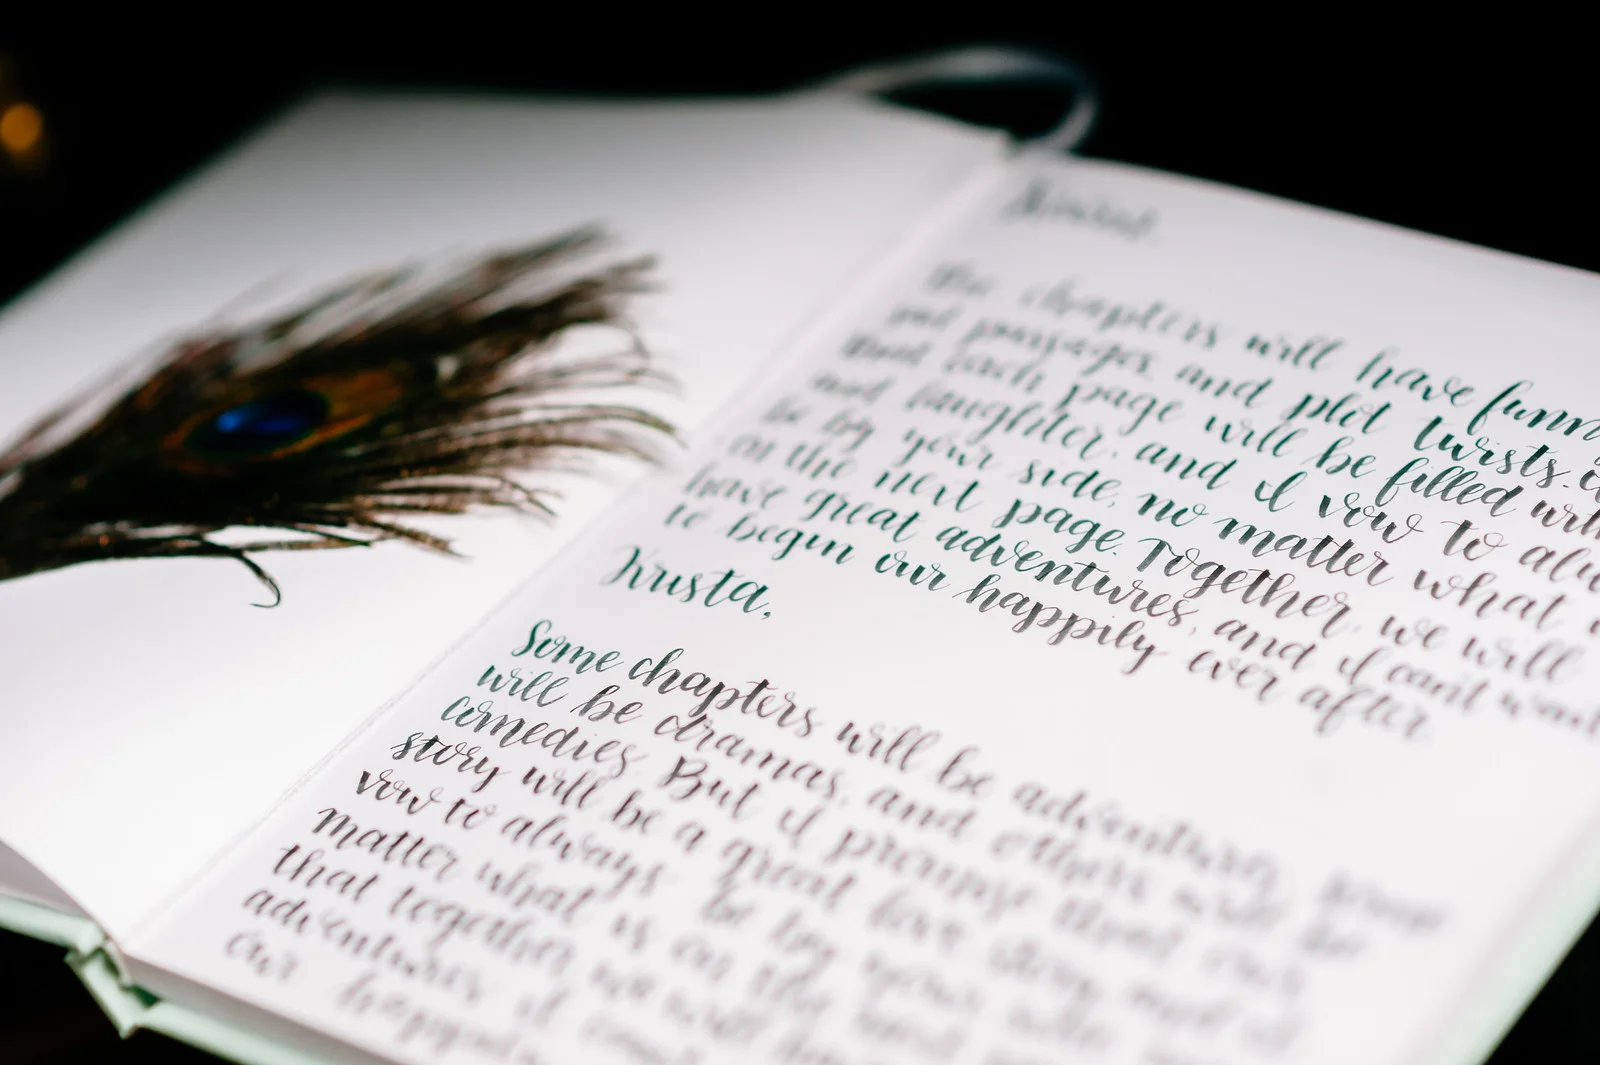 The chapters will have funny
and passages, and plot twists,
that each page will be filled with
and laughter, and I vow to always
be by your side, no matter what
on the next page. Together, we will
have great adventures, and I can't wait
to begin our happily ever after.
Krista,
Some chapters will be adventures, some
will be dramas, and others will be
comedies. But I promise that our
story will be a great love story, and I
vow to always be by your side
matter what is on the next
that together, we will have
adventures. I
our happily